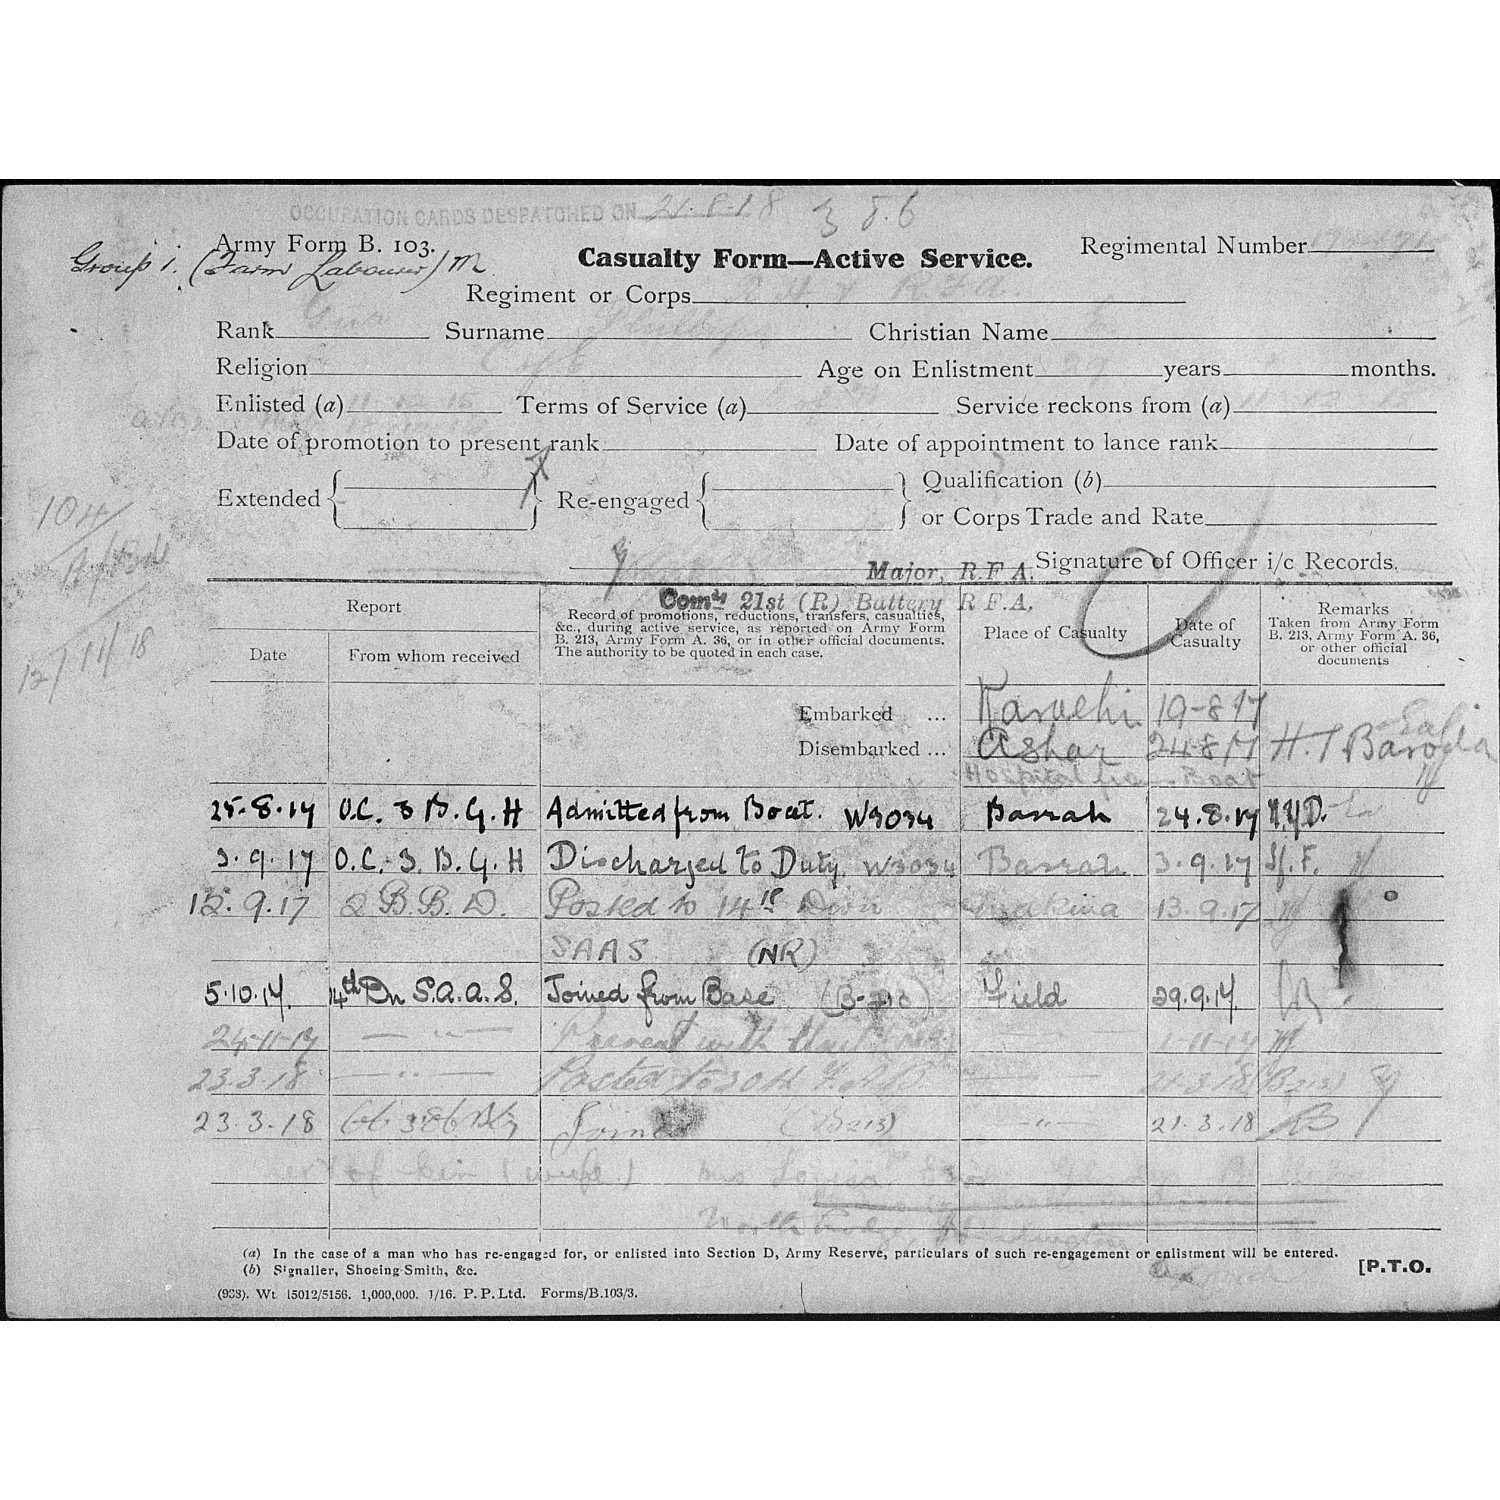 OCCUPATION CARDS DESPATCHED ON 21.8.18
386
Army Form B. 103.
Group 1. (Farm Labourer) M
Casualty Form—Active Service.
Regimental Number
Regiment or Corps R.H. & R.F.A.
Rank Gnr Surname Phillips Christian Name E
Religion C of E Age on Enlistment 29 years months.
Enlisted (a) 11.12.15 Terms of Service (a) Service reckons from (a) 11 12 15
Date of promotion to present rank Date of appointment to lance rank
Extended Re-engaged Qualification (b)
or Corps Trade and Rate
104/
12/11/18
Major, R.F.A. Signature of Officer i/c Records.
Comdg 21st (R) Battery R.F.A.
Report
Date
From whom received
Record of promotions, reductions, transfers, casualties,
&c., during active service, as reported on Army Form
B. 213, Army Form A. 36, or in other official documents.
The authority to be quoted in each case.
Place of Casualty
Date of
Casualty
Remarks
Taken from Army Form
B. 213, Army Form A. 36,
or other official
documents
Embarked ... Karachi 19-8-17
Disembarked ... Ashar 24-8-17 H.T Baroda
Hospital from Boat
25.8.17 O.C. 3 B.G.H Admitted from Boat. W3034 Basrah 24.8.17 N.Y.D.
3.9.17 O.C. 3. B.G.H Discharged to Duty W3034 Basrah 3.9.17 S.F.
12.9.17 2 B.B.D. Posted to 14th Divn Makina 13.9.17
SAAS (NR)
5.10.17. 14th Dn S.A.A.S. Joined from Base (B-213) Field 29.9.17
24-11-17 — " — Present with Unit 1-11-17
23.3.18 — " — Posted to 30th F.A.B 21.3.18 (B213)
23.3.18 O/C 386 Bty Joined (B213) — " — 21.3.18
next of kin (wife) Mrs Louisa
North Lodge,
(a) In the case of a man who has re-engaged for, or enlisted into Section D, Army Reserve, particulars of such re-engagement or enlistment will be entered.
(b) Signaller, Shoeing-Smith, &c.
[P.T.O.
(938). Wt 15012/5156. 1,000,000. 1/16. P.P. Ltd. Forms/B.103/3.